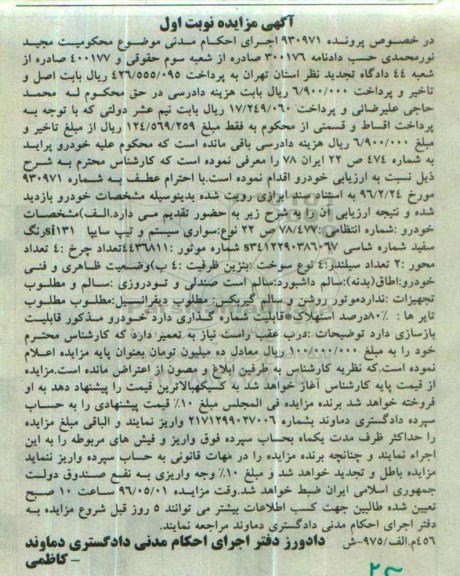 آگهی مزایده نوبت اول
در خصوص پرونده ۹۳۰۹۷۱ اجرای احکام مدنی موضوع محکومیت مجید
نورمحمدی حسب دادنامه ۳۰۰۱۷۶ صادره از شعبه سوم حقوقی و ۴۰۰۱۷۷ صادره از
شعبه ۴۴ دادگاه تجدید نظر استان تهران به پرداخت ۴۲۶/۵۵۵/۰۹۵ ریال بابت اصل و
تاخیر و پرداخت ۶/۹۰۰/۰۰۰ ریال بابت هزینه دادرسی در حق محکوم له محمد
حاجی علیرضائی و پرداخت ۱۷/۲۴۹/۰۶۰ ریال بابت نیم عشر دولتی که با توجه به
پرداخت اقساط و قسمتی از محکوم به فقط مبلغ ۱۲۴/۵۶۹/۲۵۹ ریال از مبلغ تاخیر و
مبلغ ۶/۹۰۰/۰۰۰ ریال هزینه دادرسی باقی مانده است که محکوم علیه خودرو پراید
به شماره ۴۷۴ ص ۲۲ ایران ۷۸ را معرفی نموده است که کارشناس محترم به شرح
ذیل نسبت به ارزیابی خودرو اقدام نموده است.با احترام عطف به شماره ۹۳۰۹۷۱
مورخ ۹۶/۲/۲۴ به استناد سند ابرازی رویت شده بدینوسیله مشخصات خودرو بازدید
شده و نتیجه ارزیابی آن را به شرح زیر به حضور تقدیم می دارد.الف)مشخصات
خودرو :شماره انتظامی :۷۸/۴۷۷ ص ۲۲ نوع:سواری سیستم و تیپ سایپا si۱۳۱رنگ
سفید شماره شاسی s۳۴۱۲۲۹۰۳۸۶۰۶۷ شماره موتور :۴۴۳۶۸۱۱تعداد چرخ :۴ تعداد
محور :۲ تعداد سیلندر:۴ نوع سوخت :بنزین ظرفیت :۴ ب)وضعیت ظاهری و فنی
خودرو:اطاق(بدنه):سالم داشبورد:سالم است صندلی و تودروزی :سالم و مطلوب
تجهیزات :نداردموتور:روشن و سالم گیربکس: مطلوب دیفرانسیل:مطلوب مطلوب
تایر ها : ۸۰٪درصد استهلاک*قابلیت شماره گذاری دارد خودرو مذکور قابلیت
بازسازی دارد توضیحات :درب عقب راست نیاز به تعمیر دارد که کارشناس محترم
خود را به مبلغ ۱۰۰/۰۰۰/۰۰۰ ریال معادل ده میلیون تومان بعنوان پایه مزایده اعلام
نموده است.که نظریه کارشناس به طرفین ابلاغ و مصون از اعتراض مانده است.مزایده
از قیمت پایه کارشناس آغاز خواهد شد به کسیکهبالاترین قیمت را پیشنهاد دهد به او
فروخته خواهد شد برنده مزایده فی المجلس مبلغ ۱۰٪ قیمت پیشنهادی را به حساب
سپرده دادگستری دماوند بشماره ۲۱۷۱۲۹۹۰۳۷۰۰۶ واریز نمایند و الباقی مبلغ مزایده
را حداکثر ظرف مدت یکماه بحساب سپرده فوق واریز و فیش های مربوطه را به این
اجراء نمایند و چنانچه برنده مزایده را در مهات قانونی به حساب سپرده واریز ننماید
مزایده باطل و تجدید خواهد شد و مبلغ ۱۰٪ وجه واریزی به نفع صندوق دولت
جمهوری اسلامی ایران ضبط خواهد شد.وقت مزایده ۹۶/۰۵/۰۱ ساعت ۱۰ صبح
تعیین شده طالبین جهت کسب اطلاعات بیشتر می توانند ۵ روز قبل شروع مزایده به
دفتر اجرای احکام مدنی دادگستری دماوند مراجعه نمایند.
۴۵۶م.الف/۹۷۵-ش دادورز دفتر اجرای احکام مدنی دادگستری دماوند
- کاظمی